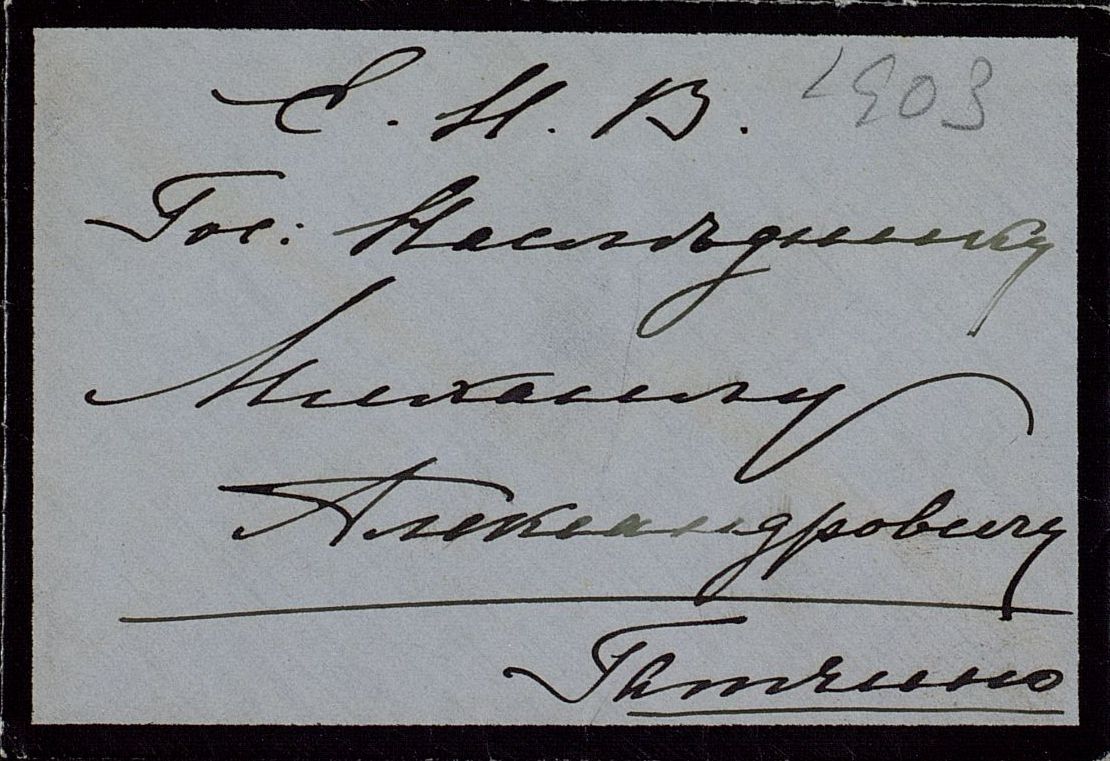 Е. И. В. 1903
Гос: Наслѣднику
Михаилу
Александровичу
Гатчино